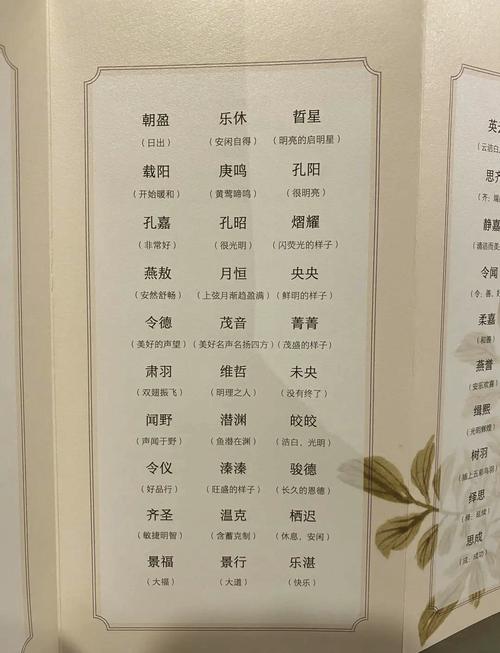 朝盈 乐休 晢星
（日出） （安闲自得） （明亮的启明星）
载阳 庚鸣 孔阳
（开始暖和） （黄莺啼鸣） （很明亮）
孔嘉 孔昭 熠耀
（非常好） （很光明） （闪荧光的样子）
燕敖 月恒 央央
（安然舒畅） （上弦月渐趋盈满） （鲜明的样子）
令德 茂音 菁菁
（美好的声望） （美好名声名扬四方） （茂盛的样子）
肃羽 维哲 未央
（双翅振飞） （明理之人） （没有终了）
闻野 潜渊 皎皎
（声闻于野） （鱼潜在渊） （洁白、光明）
令仪 溱溱 骏德
（好品行） （旺盛的样子） （长久的恩德）
齐圣 温克 栖迟
（敏捷明智） （含蓄克制） （休息，安闲）
景福 景行 乐湛
（大福） （大道） （快乐）
（云洁白
思齐
静嘉
令闻
柔嘉
（和善）
燕誉
（安乐欢喜）
缉熙
（光明辉煌）
树羽
（插上五彩鸟羽）
绎思
思成
（成，成功）